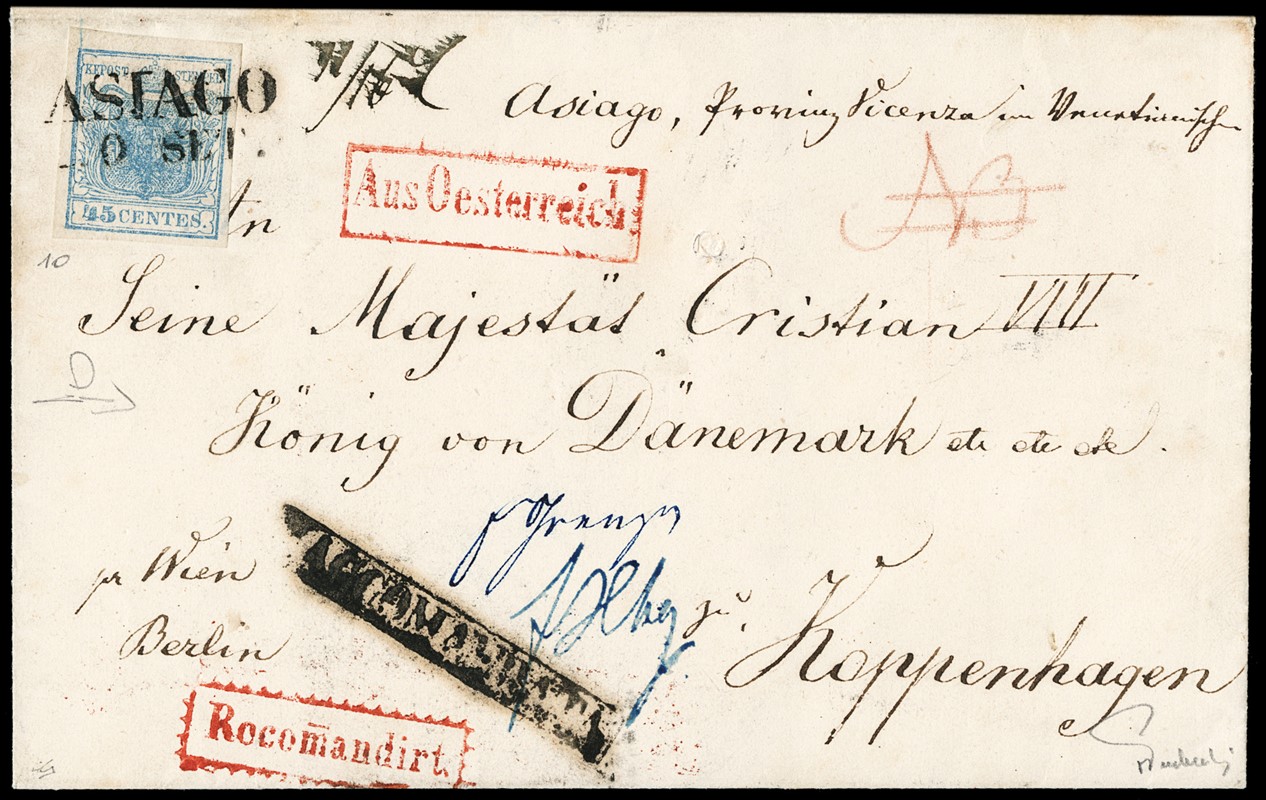 Asiago, Provinz Vicenza im Venetianischen
KKPOST STEMPEL
ASIAGO
0 SET.
45 CENTES.
Aus Oesterreich.
An
10
Seine Majestät Cristian VIII
König von Dänemark etc etc etc.
pr Wien
Berlin
RACCOMANDATA
zu Koppenhagen
Recomandirt.